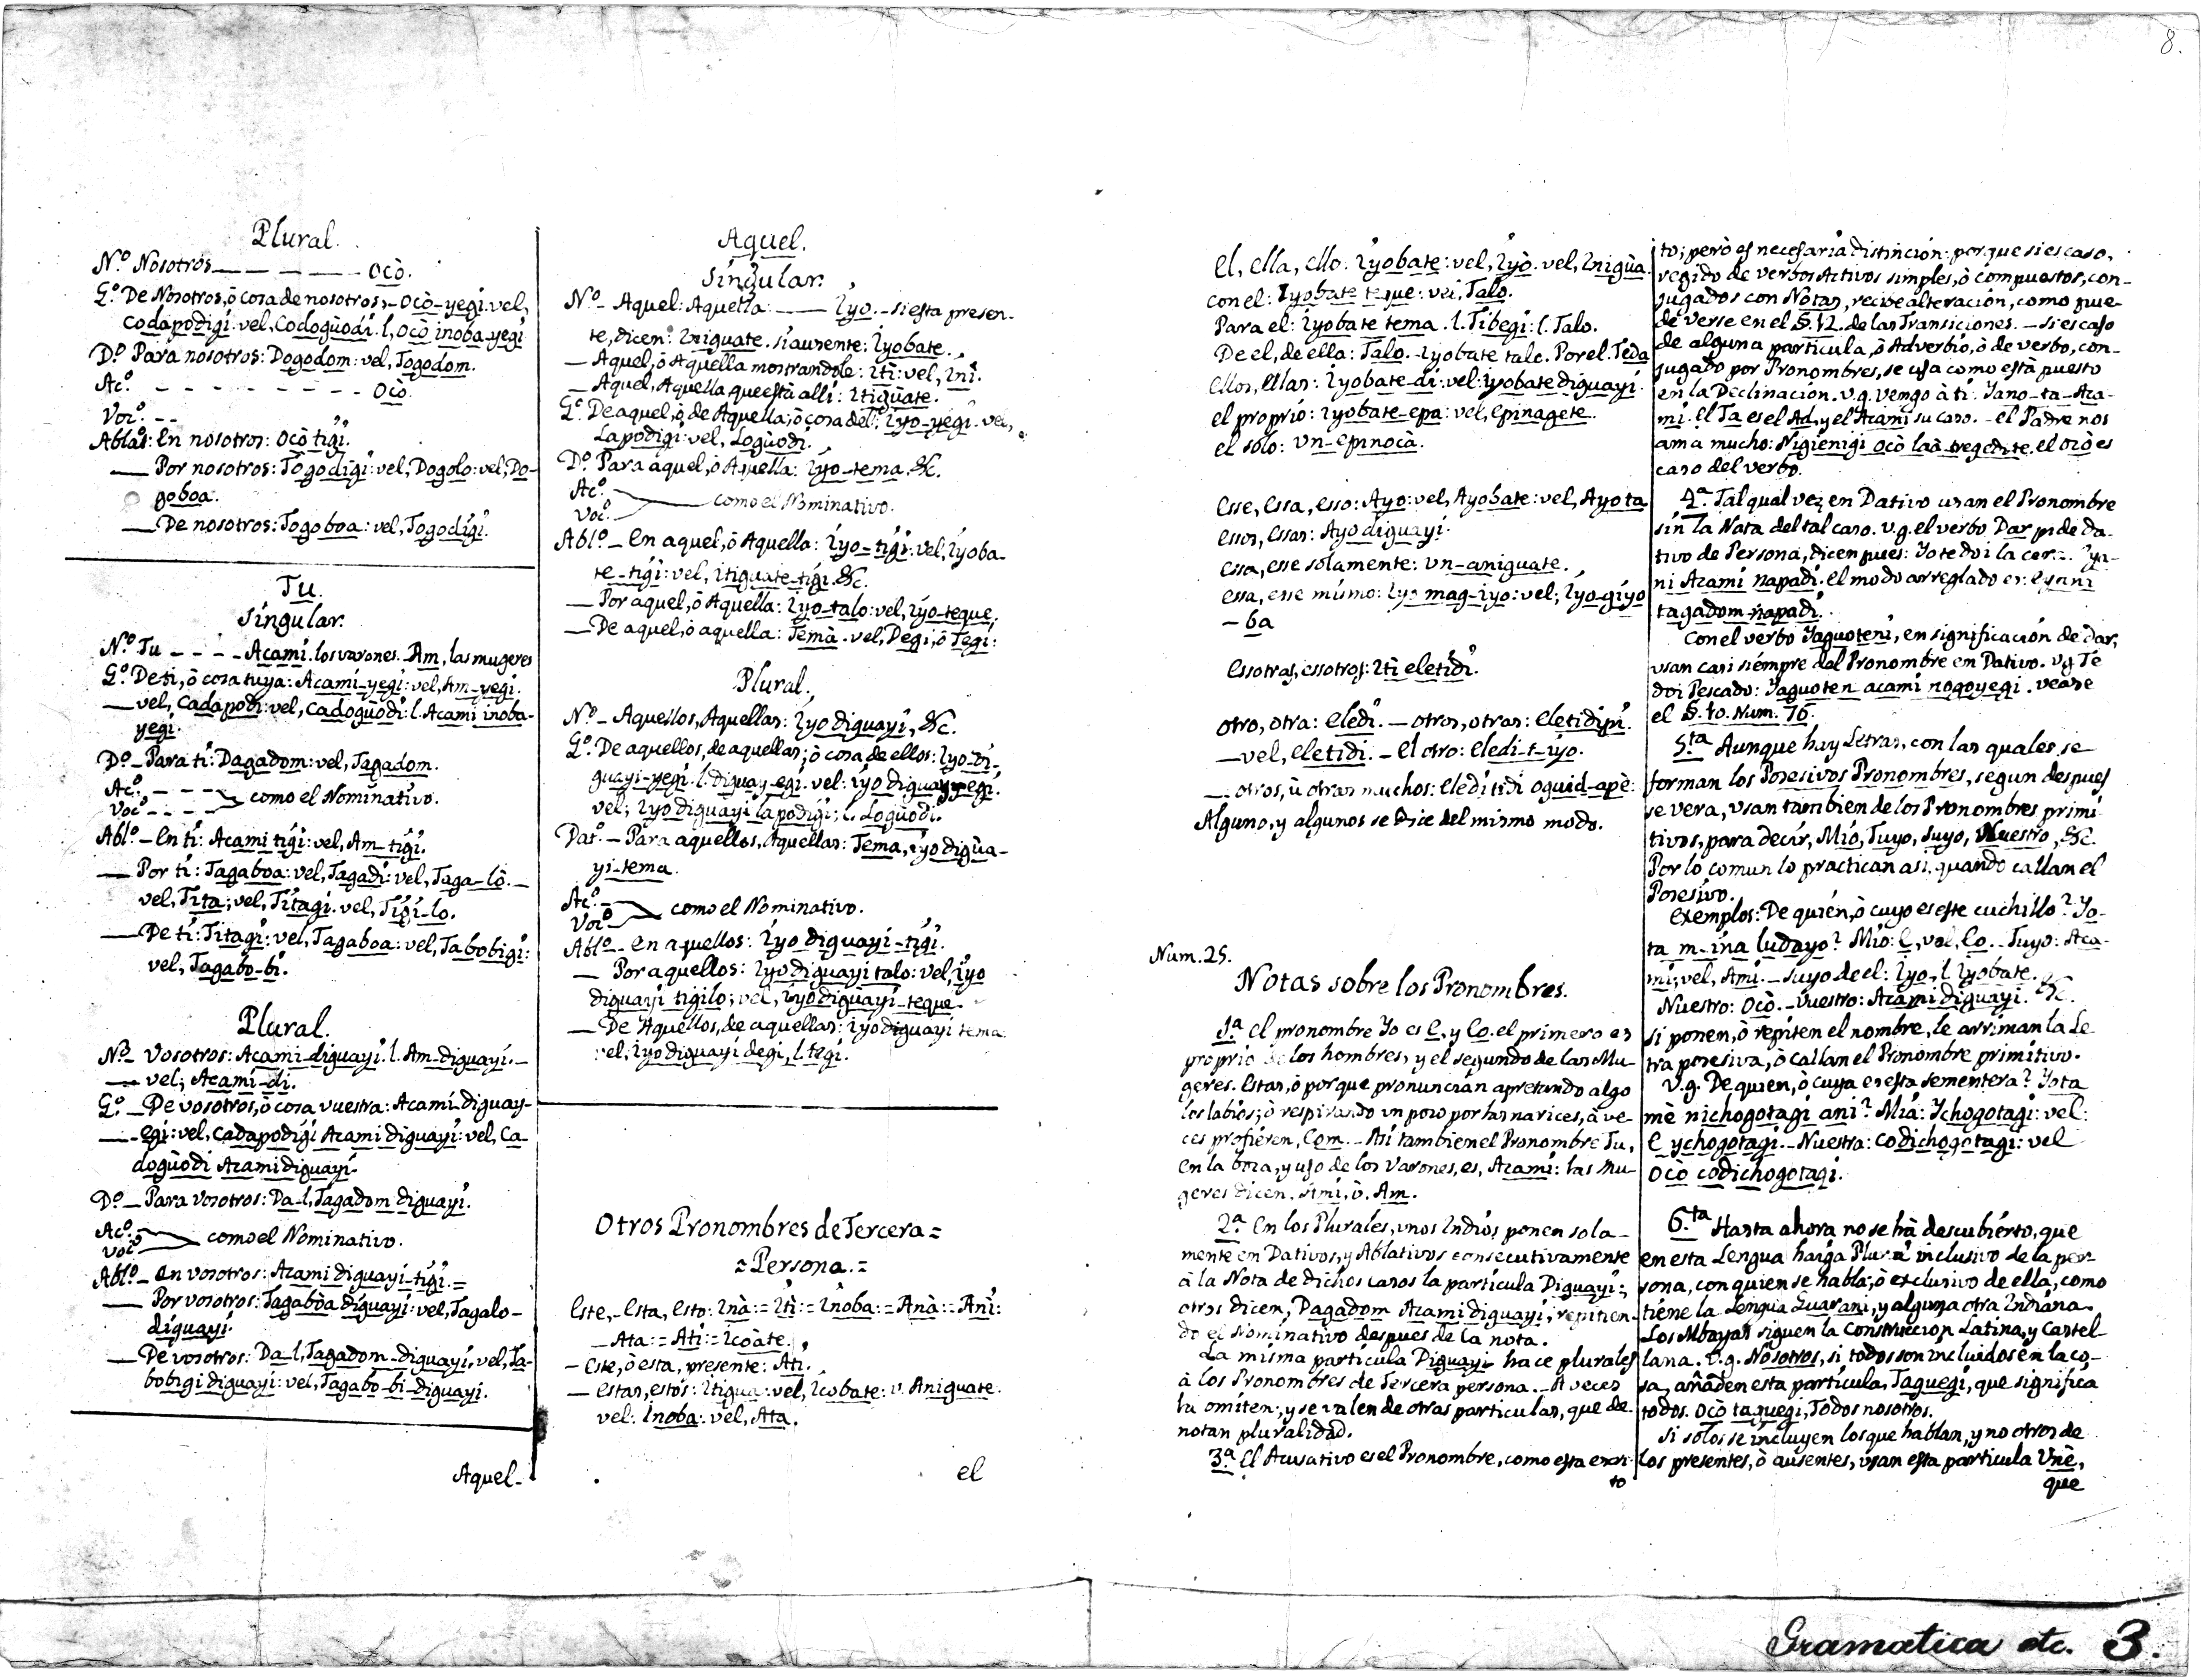 8.
Plural.
N.º Nosotros — — — — Ocò.
G.º De Nosotros, ò cosa de nosotros, - Ocò-yegi. vel,
Codapodigi. vel, Codogùodi. l, Ocò inoba-yegi
D.º Para nosotros: Dogodom: vel, Togodom.
Ac.º - - - - - - - - Ocò.
Voc.º - -
Ablat: En nosotros: Ocò tigi.
— Por nosotros: Togodigi: vel, Dogolo: vel, Do-
goboa.
— De nosotros: Togoboa: vel, Togodigi.
Tu.
Singular.
N.º Tu - - - - Acami. los varones. Am, las mugeres
G.º De ti, ò cosa tuya: Acami-yegi: vel, Am-yegi.
— vel, Cadapodi: vel, Cadogùodi: l. Acami inoba-
yegi.
D.º - Para ti: Dagadom: vel, Tagadom.
Ac.º - - -
Voc.º - - - como el Nominativo.
Abl.º - En ti: Acami tigi: vel, Am-tigi.
— Por ti: Tagaboa: vel, Tagadi: vel, Taga-lò. -
vel, Tita; vel, Titagi. vel, Tigi-lo.
— De ti: Titagi: vel, Tagaboa: vel, Tabobigi:
vel, Tagabo-bi.
Plural.
N.º - Vosotros: Acami-diguayi. l. Am-diguayi. -
— vel; Acami-di.
G.º - De vosotros, ò cosa vuestra: Acami-diguay-
— egi: vel, Cadapodigi Acami diguayi: vel, Ca-
dogùodi Acami diguayi.
D.º - Para vosotros: Da-l, Tagadom diguayi.
Ac.º
Voc.º como el Nominativo.
Abl.º - En vosotros: Acami diguayi-tigi. =
— Por vosotros: Tagabòa diguayi: vel, Tagalo-
diguayi.
— De vosotros: Da-l, Tagadom-diguayi, vel, Ta-
bobigi diguayi: vel, Tagabo-bi-diguayi.
Aquel-
Aquel.
Singular.
N.º - Aquel: Aquella — Iyo. - si esta presen-
te, dicen: Iniguate. si ausente: Iyobate.
— Aquel, ò Aquella mostrandole: Iti: vel, Ini.
— Aquel, Aquella que està alli: Itigùate.
G.º De aquel, ò de Aquella; ò cosa del: Iyo-yegi. vel,
Lapodigi: vel, Logùodi.
D.º Para aquel, ò Aquella: Iyo-tema. &c.
Ac.º
Voc.º como el Nominativo.
Abl.º - En aquel, ò Aquella: Iyo=tigi: vel, Iyoba-
te-tigi: vel, Itiguate-tigi. &c.
— Por aquel, ò Aquella: Iyo-talo: vel, Iyo-teque.
— De aquel, ò aquella: Temà. vel, Degi, ò Tegi:
Plural.
N.º - Aquellos, Aquellas: Iyo diguayi, &c.
G.º De aquellos, de aquellas; ò cosa de ellos: Iyo-di-
guayi-yegi. l. diguay-egi. vel: iyo diguayyegi.
vel; Iyo diguayi lapodigi; l. Logùodi.
Dat.º - Para aquellos, Aquellas: Tema, iyo digùa-
yi-tema.
Ac.º -
Voc.º como el Nominativo.
Abl.º - En aquellos: Iyo diguayi-tigi.
— Por aquellos: Iyo diguayi talo: vel, Iyo
diguayi tigilo; vel, iyo digùayi-teque.
— De Aquellos, de aquellas: Iyo diguayi tema
vel; Iyo diguayi degi, l. tegi.
Otros Pronombres de Tercera =
= Persona. =
Este, - Esta, Esto: Inà: = Iti: = Inoba: = Anà: = Ani:
— Ata: = Ati: = Icoàte.
— Este, ò esta, presente: Ati.
— Estas, estos: Itigua: vel, Icobate: v. Aniguate.
vel: Inoba: vel, Ata.
el
el, ella, ello: Iyobate: vel, Iyò. vel, Inigùa.
con el: Iyobate teque: vel, Talo.
Para el: Iyobate tema. l. Tibegi: l. Talo.
De el, de ella: Talo. - Iyobate talo. Por el. Teda
ellos, ellas: Iyobate-di: vel: Iyobate diguayi.
el proprio: Iyobate-epa: vel, Epinagete.
el solo: Un-epinocà.
Esse, Essa, esso: Ayo: vel, Ayobate: vel, Ayota
essos, Essas: Ayo diguayi.
essa, esse solamente: Un-aniguate.
essa, esse mismo: Iyo mag-iyo: vel; Iyo-giyo
- ba
Essotras, essotros: Iti eletidi.
otro, otra: Eledi. - otros, otras: Eletidipi.
— vel, Eletidi. - El otro: Eledi-t-iyo.
— otros, ù otras muchos: Eledi tidi oguid-apè:
Alguno, y algunos se Dice del mismo modo.
Num. 25.
Notas sobre los Pronombres.
1.ª El pronombre Yo es E, y Eo. el primero es
proprio de los hombres, y el segundo de las Mu-
geres. Estas, ò porque pronuncian apretando algo
los labios; ò respirando un poco por las narices, à ve-
ces profieren, Eom. - Asi tambien el Pronombre Tu,
en la boca, y uso de los Varones, es, Acami: las Mu-
geres dicen. Ami, ò. Am.
2.ª En los Plurales, unos Indios ponen sola-
mente en Dativos, y Ablativos consecutivamente
à la Nota de dichos casos la particula Diguayi:
otros dicen, Dagadom Acami diguayi, repitien-
do el Nominativo despues de la nota.
La misma particula Diguayi hace plurales
à los Pronombres de Tercera persona. - A veces
la omiten; y se valen de otras particulas, que de-
notan pluralidad.
3.ª El Acusativo es el Pronombre, como esta escri-
to
to; però es necesaria distinción: porque si es caso,
regido de verbos Activos simples, ò compuestos, con-
jugados con Notas, recibe alteración, como pue-
de verse en el §. 12. de las Transiciones. - Si es caso
de alguna particula, ò Adverbio, ò de verbo, con-
jugado por Pronombres, se usa como està puesto
en la Declinación. v.g. Vengo à ti: Yano-ta-Aca-
mi. el Ta es el Ad, y el Acami su caso. - el Padre nos
ama mucho: Nigienigi Ocò laà-tregedite. el ocò es
caso del verbo.
4.ª Tal qual vez en Dativo usan el Pronombre
sin la Nota del tal caso. v.g. el verbo Dar pide Da-
tivo de Persona, dicen pues: Yo te doi la cera. Eya-
ni Acami napadi. el modo arreglado es: Eyani
tagadom napadi.
Con el verbo Yaguoteni, en significación de dar,
usan casi siempre del Pronombre em Dativo. v.g. Te
doi Pescado: Yaguoten acami nogoyegi. vease
el §. 10. Num. 76.
5.ta Aunque hay Letras, con las quales se
forman los Posesivos Pronombres, segun despues
se vera, usan tambien de los Pronombres primi-
tivos, para decir, Mio, Tuyo, Suyo, Nuestro, &c.
Por lo comun lo practican asi, quando callan el
Posesivo.
Exemplos: De quien, ò cuyo es este cuchillo? Yo-
ta m-ina ludayo? Mio: E, vel, Eo. - Tuyo: Aca-
mi; vel, Ami. - Suyo de el: Iyo, l. Iyobate.
Nuestro: Ocò. - Vuestro: Acami diguayi. &c.
Si ponen, ò repiten el nombre, le arriman la Le-
tra posesiva, ò callan el Pronombre primitivo.
v.g. De quien, ò cuya es esta sementera? Yota
mè nichogotagi ani? Mià: Ychogotagi: vel:
E ychogotagi. - Nuestra: Codichogotagi: vel
Ocò codichogotagi.
6.ta Hasta ahora no se hà descubierto, que
en esta Lengua haiga Plural inclusivo de la per-
sona, con quien se habla; ò exclusivo de ella, como
tiene la Lengua Guarani, y alguna otra Indiana.
Los Mbayas siguen la construccion Latina, y Castel-
lana. v.g. Nosotros, si todos son incluidos en la co-
sa, añaden esta particula, Taguegi, que significa
todos. Ocò taguegi, Todos nosotros.
Si solos se incluyen los que hablan, y no otros de
los presentes, ò ausentes, usan esta particula Unè,
que
Gramatica etc. 3.